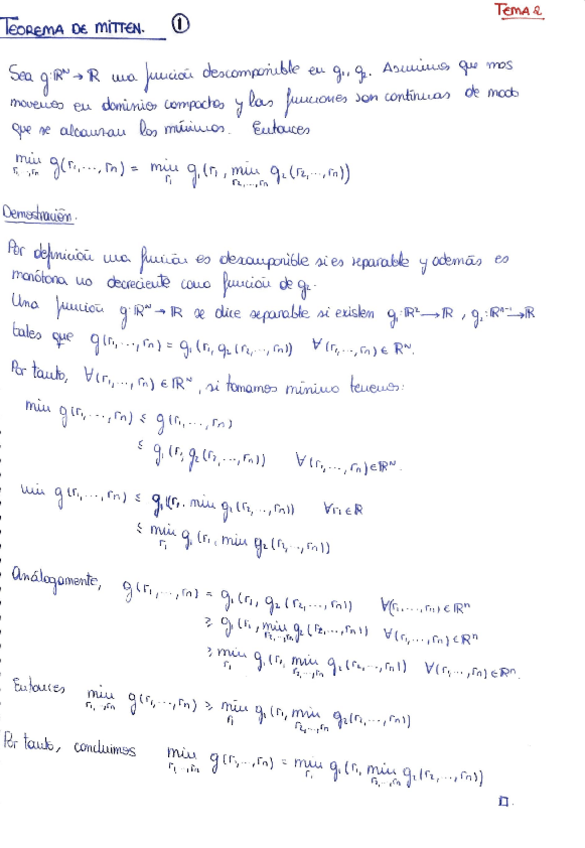 TEMA 2
TEOREMA DE MITTEN. ①
Sea g: ℝᴺ → ℝ una función descomponible en g₁, g₂. Asumimos que nos
movemos en dominios compactos y las funciones son continuas de modo
que se alcanzan los mínimos. Entonces
min_{r₁,…,rₙ} g(r₁,…,rₙ) = min_{r₁} g₁(r₁, min_{r₂,…,rₙ} g₂(r₂,…,rₙ))
Demostración.
Por definición una función es descomponible si es separable y además es
monótona no decreciente como función de g₂.
Una función g: ℝᴺ → ℝ se dice separable si existen g₁: ℝ² → ℝ, g₂: ℝⁿ⁻¹ → ℝ
tales que g(r₁,…,rₙ) = g₁(r₁, g₂(r₂,…,rₙ)) ∀(r₁,…,rₙ) ∈ ℝᴺ.
Por tanto, ∀(r₁,…,rₙ) ∈ ℝᴺ, si tomamos mínimo tenemos:
min g(r₁,…,rₙ) ≤ g(r₁,…,rₙ)
≤ g₁(r₁ g₂(r₂,…,rₙ)) ∀(r₁,…,rₙ) ∈ ℝᴺ.
min g(r₁,…,rₙ) ≤ g₁(r₁, min g₂(r₂,…,rₙ)) ∀r₁ ∈ ℝ
≤ min_{r₁} g₁(r₁, min g₂(r₂,…,rₙ))
Análogamente, g(r₁,…,rₙ) = g₁(r₁, g₂(r₂,…,rₙ)) ∀(r₁,…,rₙ) ∈ ℝⁿ
≥ g₁(r₁, min_{r₂,…,rₙ} g₂(r₂,…,rₙ)) ∀(r₁,…,rₙ) ∈ ℝⁿ
≥ min_{r₁} g₁(r₁, min_{r₂,…,rₙ} g₂(r₂,…,rₙ)) ∀(r₁,…,rₙ) ∈ ℝⁿ.
Entonces min_{r₁,…,rₙ} g(r₁,…,rₙ) ≥ min_{r₁} g₁(r₁, min_{r₂,…,rₙ} g₂(r₂,…,rₙ))
Por tanto, concluimos min_{r₁,…,rₙ} g(r₁,…,rₙ) = min_{r₁} g₁(r₁, min_{r₂,…,rₙ} g₂(r₂,…,rₙ))
□.